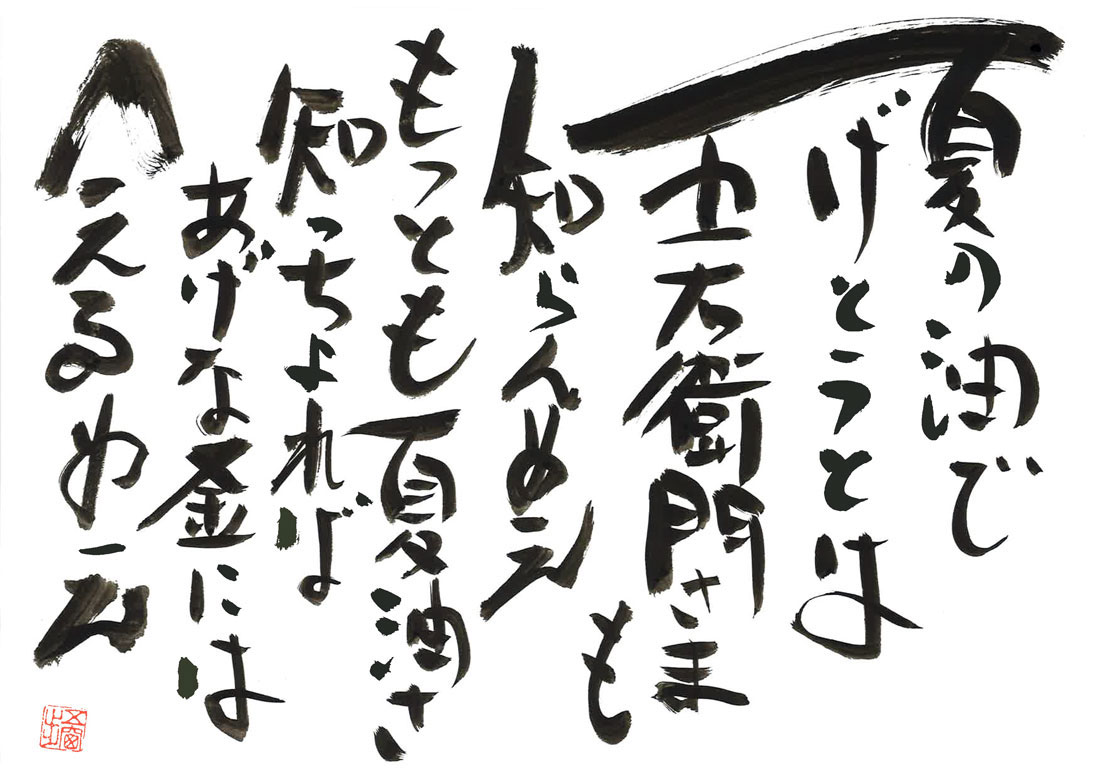 夏の油で
げとうとは
五右衛門さま
も
知らんめえ
もっとも夏油さ
知っちょれば
あげな釜には
へえるめえ